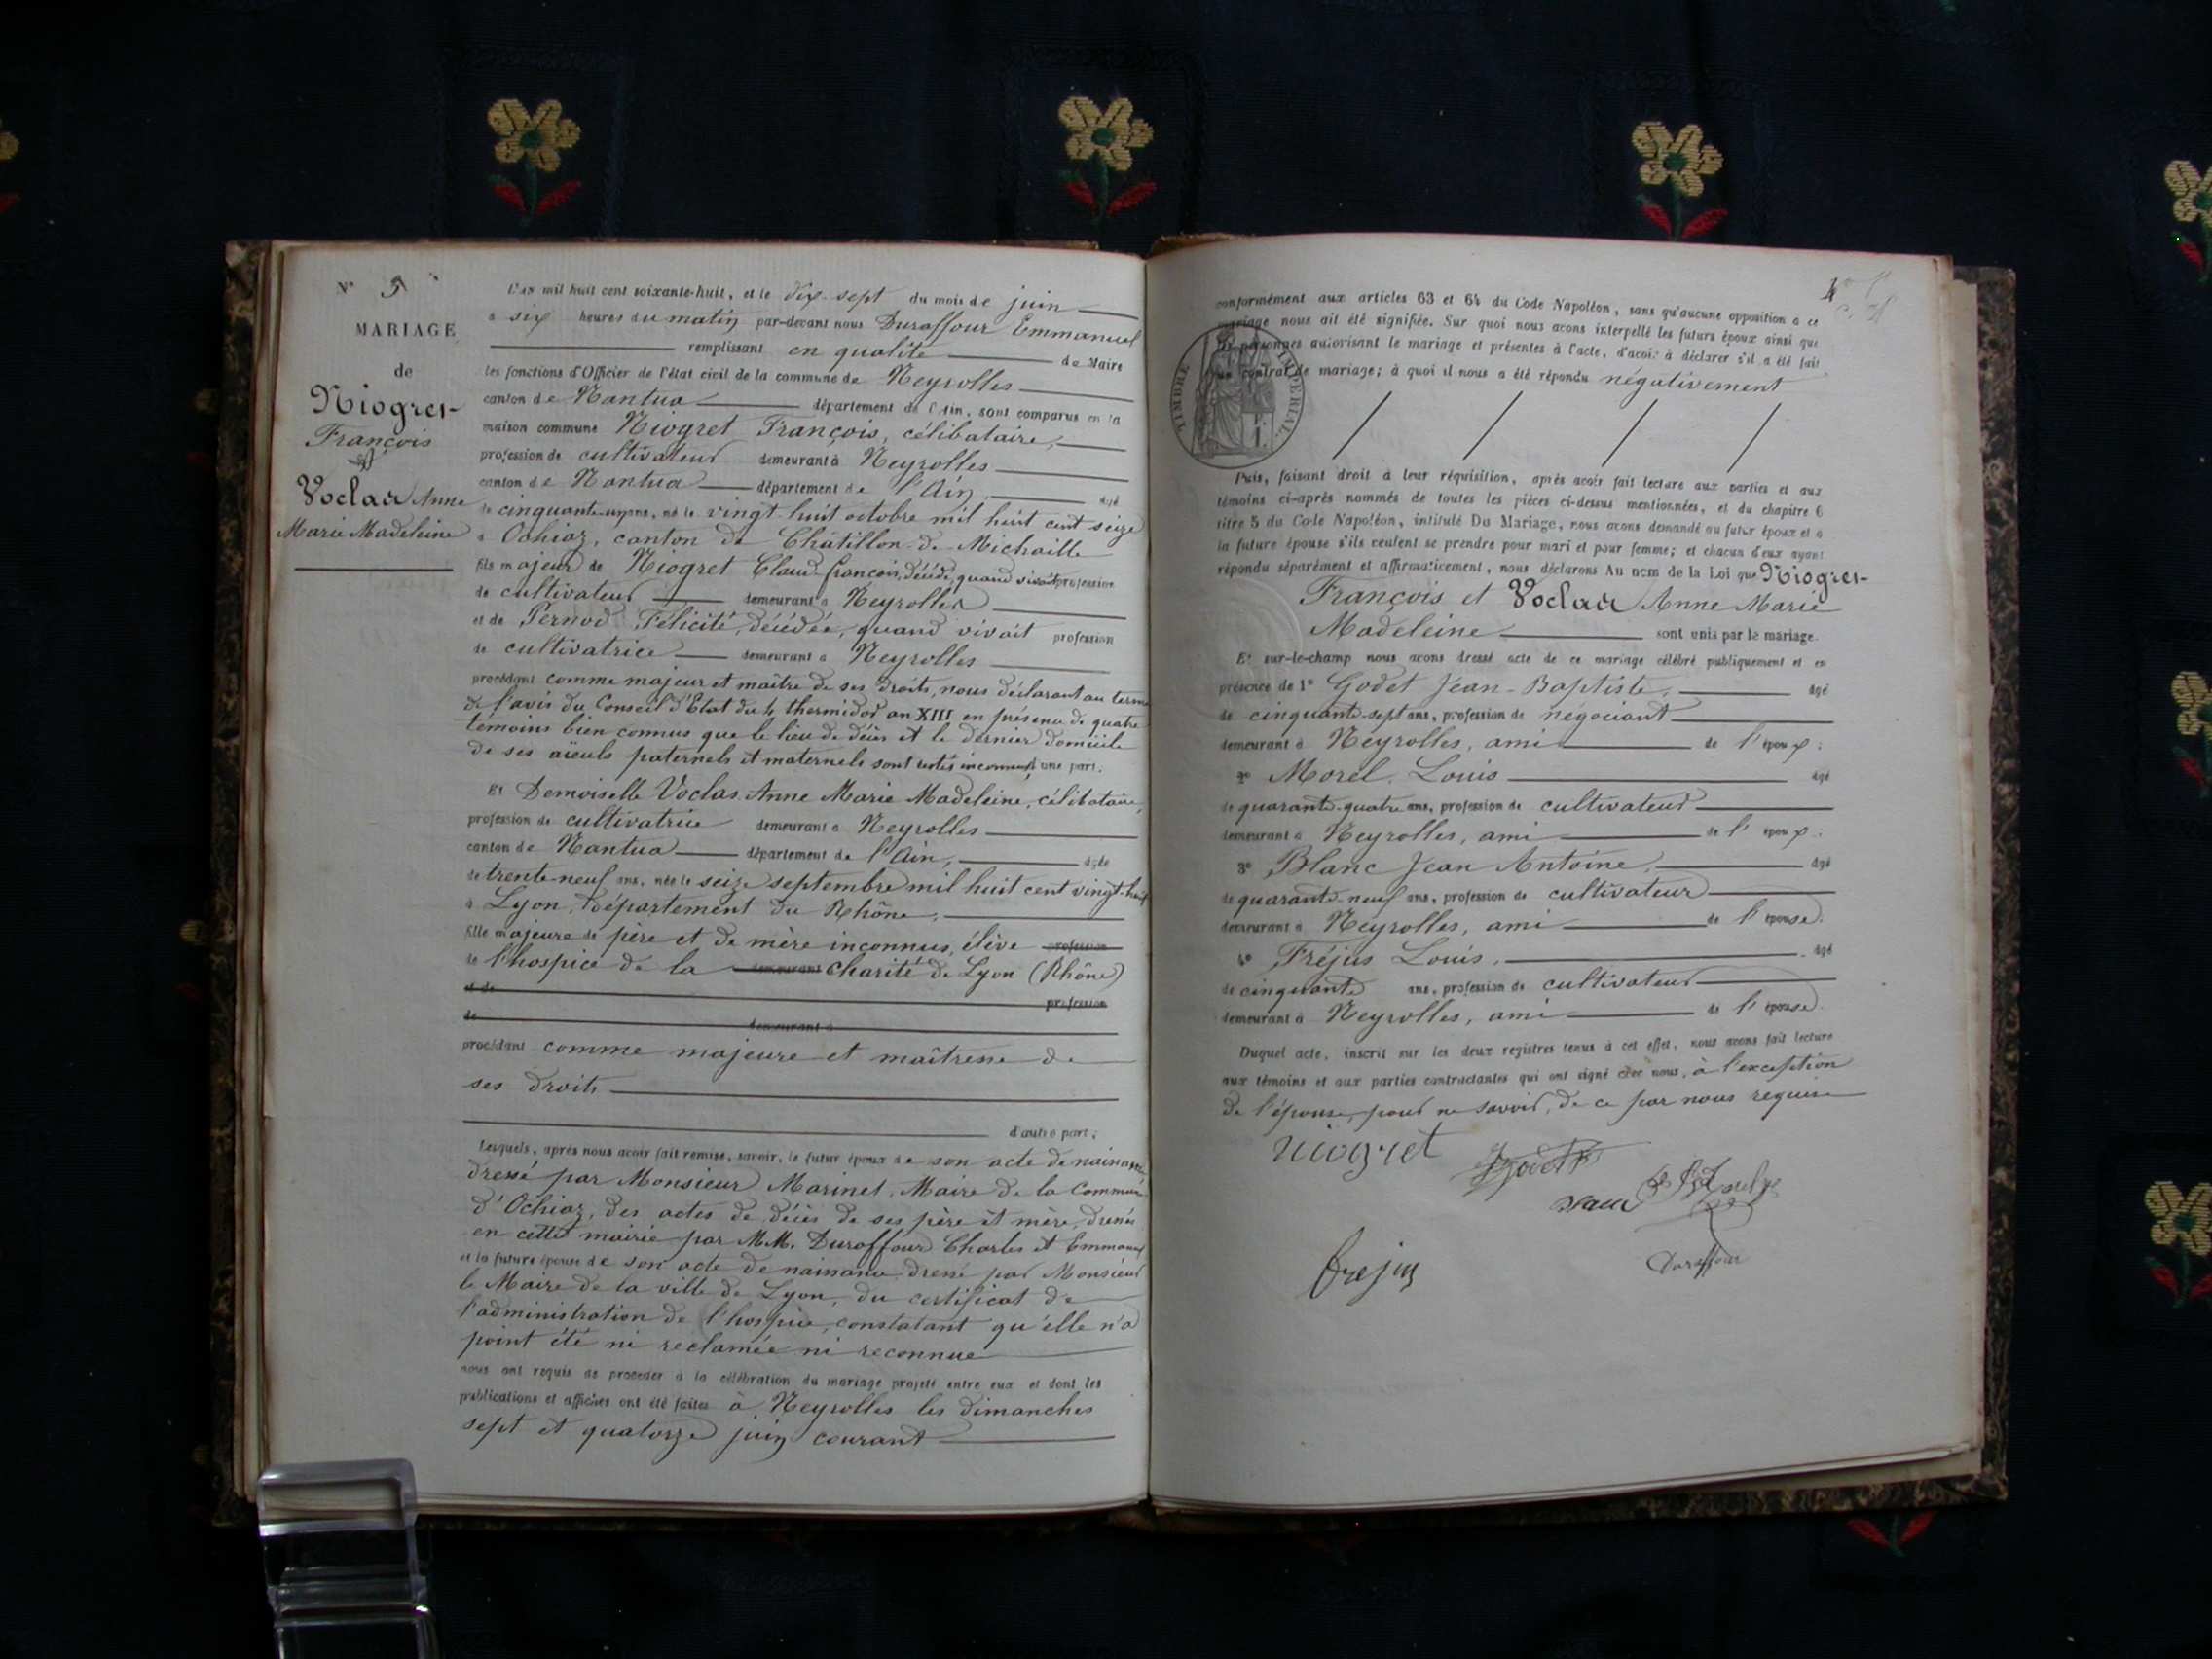 N° 5
MARIAGE
de
Niogret
François
&
Voclas Anne
Marie Madeleine
L'AN mil huit cent soixante-huit, et le dix-sept du mois de juin
à six heures du matin par-devant nous Duraffour Emmanuel
remplissant en qualité de Maire
les fonctions d'Officier de l'état civil de la commune de Neyrolles
canton de Nantua département de l'Ain, sont comparus en la
maison commune Niogret François, célibataire,
profession de cultivateur demeurant à Neyrolles
canton de Nantua département de l'Ain, agé
de cinquante-un ans, né le vingt-huit octobre mil huit cent seize
à Ochiaz, canton de Châtillon-de-Michaille
fils majeur de Niogret Claud François, décédé, quand vivait profession
de cultivateur demeurant à Neyrolles
et de Pernod Félicité, décédée, quand vivait profession
de cultivatrice demeurant à Neyrolles
procédant comme majeur et maître de ses droits, nous déclarant au terme
de l'avis du Conseil d'Etat du 4 thermidor an XIII en présence de quatre
témoins bien connus que le lieu de décès et le dernier domicile
de ses aïeuls paternels et maternels sont restés inconnus d'une part.
Et Demoiselle Voclas Anne Marie Madeleine, célibataire,
profession de cultivatrice demeurant à Neyrolles
canton de Nantua département de l'Ain, agée
de trente-neuf ans, née le seize septembre mil huit cent vingt-huit
à Lyon, département du Rhône,
fille majeure de père et de mère inconnus, élève profession
de l'hospice de la demeurant Charité de Lyon (Rhône)
et de profession
de demeurant à
procédant comme majeure et maîtresse de
ses droits
d'autre part;
Lesquels, après nous avoir fait remise, savoir, le futur époux de son acte de naissance
dressé par Monsieur Marinet, Maire de la Commune
d'Ochiaz, des actes de décès de ses père et mère, dressés
en cette mairie par MM. Duraffour Charles et Emmanuel
et la future épouse de son acte de naissance dressé par Monsieur
le Maire de la ville de Lyon, du certificat de
l'administration de l'hospice, constatant qu'elle n'a
point été ni reclamée ni reconnue
nous ont requis de procéder à la célébration du mariage projeté entre eux et dont les
publications et affiches ont été faites à Neyrolles les dimanches
sept et quatorze juin courant
conformément aux articles 63 et 64 du Code Napoléon, sans qu'aucune opposition à ce
mariage nous ait été signifiée. Sur quoi nous avons interpellé les futurs époux ainsi que
les personnes autorisant le mariage et présentes à l'acte, d'avoir à déclarer s'il a été fait
un contrat de mariage; à quoi il nous a été répondu négativement
TIMBRE IMPÉRIAL
Puis, faisant droit à leur réquisition, après avoir fait lecture aux parties et aux
témoins ci-après nommés de toutes les pièces ci-dessus mentionnées, et du chapitre 6
titre 5 du Code Napoléon, intitulé Du Mariage, nous avons demandé au futur époux et à
la future épouse s'ils veulent se prendre pour mari et pour femme; et chacun d'eux ayant
répondu séparément et affirmativement, nous déclarons Au nom de la Loi que Niogret
François et Voclas Anne Marie
Madeleine sont unis par le mariage.
Et sur-le-champ nous avons dressé acte de ce mariage célébré publiquement et en
présence de 1° Godet Jean-Baptiste, agé
de cinquante-sept ans, profession de négociant
demeurant à Neyrolles, ami de l'époux;
2° Morel Louis agé
de quarante-quatre ans, profession de cultivateur
demeurant à Neyrolles, ami de l'époux;
3° Blanc Jean Antoine, agé
de quarante-neuf ans, profession de cultivateur
demeurant à Neyrolles, ami de l'épouse;
4° Fréjus Louis, agé
de cinquante ans, profession de cultivateur
demeurant à Neyrolles, ami de l'épouse.
Duquel acte, inscrit sur les deux registres tenus à cet effet, nous avons fait lecture
aux témoins et aux parties contractantes qui ont signé avec nous, à l'exception
de l'épouse, pour ne savoir, de ce par nous requise
niogret
Godet
frejus
Duraffour